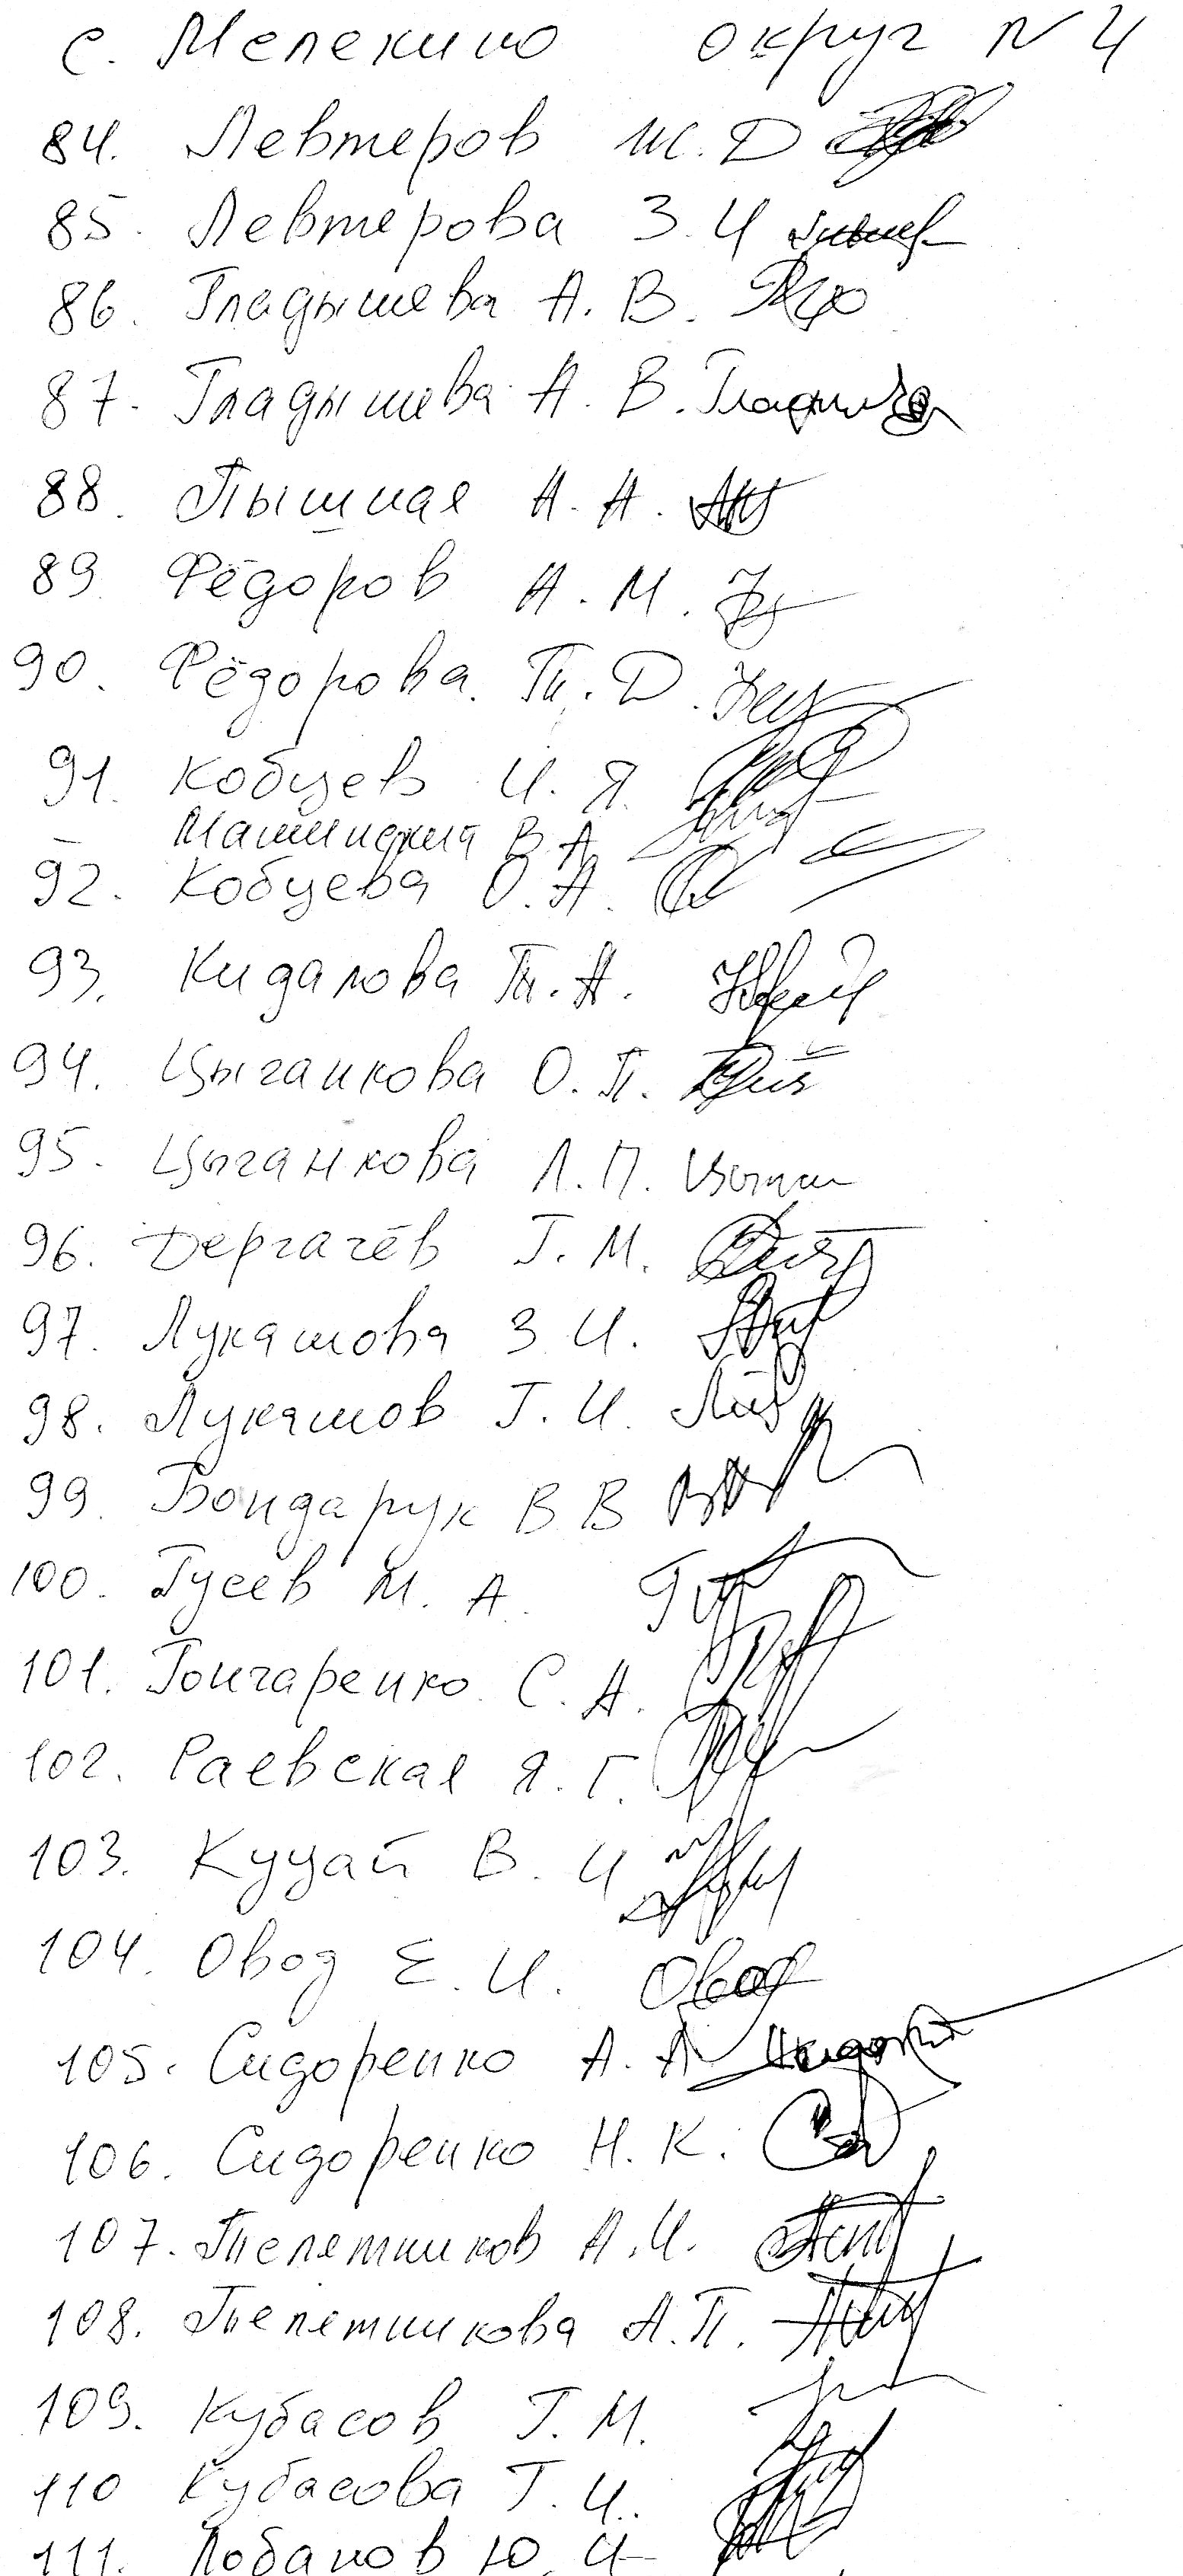 с. Мелекино округ N 4
84. Левтеров И. Д
85. Левтерова З. И
86. Гладышева А. В.
87. Гладышева А. В.
88. Пышная А. А.
89. Фёдоров А. М.
90. Фёдорова Т. Д.
91. Кобцев И. Я.
В А
92. Кобцева О. А.
93. Кидалова Т. А.
94. Цыганкова О. П.
95. Цыганкова Л. П.
96. Дергачёв Г. М.
97. Лукашова З. И.
98. Лукашов Г. И.
99. Бондарук В В
100. Гусев М. А.
101. Гончаренко С. А.
102. Раевская Я. Г.
103. Куцай В. И
104. Овод Е. И. Овод
105. Сидоренко А. А
106. Сидоренко Н. К.
107. Телетников А. И.
108. Телетникова А. П.
109. Кубасов Г. М.
110 Кубасова Г. И.
111. Лобанов Ю. И